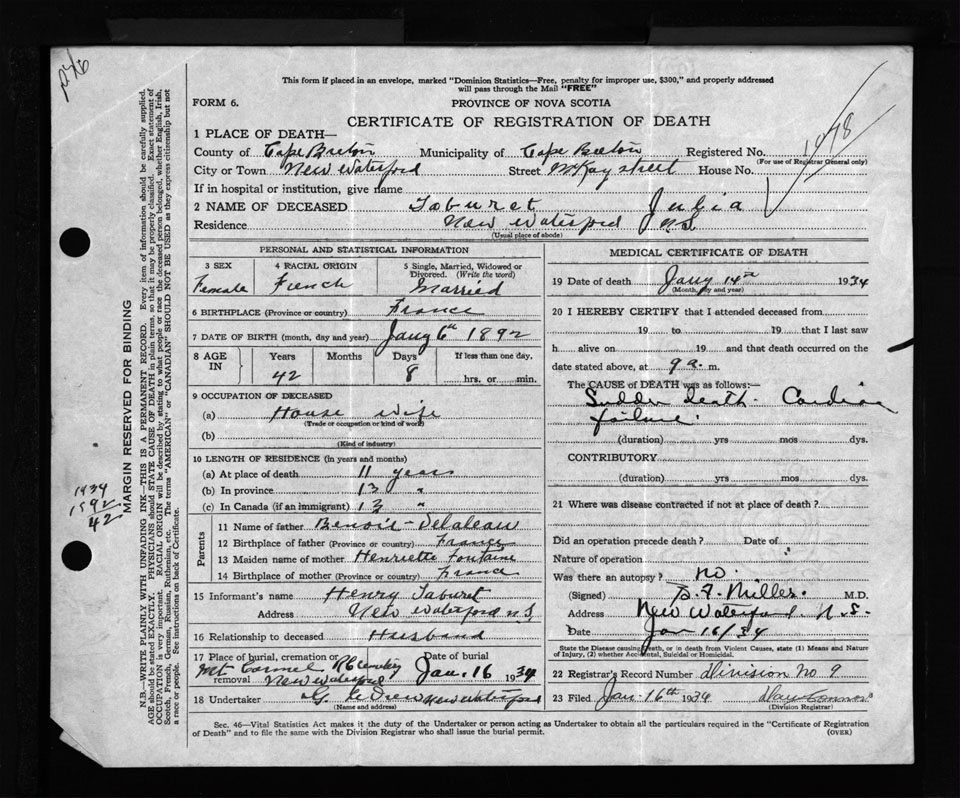 This form if placed in an envelope, marked "Dominion Statistics—Free, penalty for improper use, $300," and properly addressed
will pass through the Mail "FREE"
FORM 6.
PROVINCE OF NOVA SCOTIA
CERTIFICATE OF REGISTRATION OF DEATH
1478
1 PLACE OF DEATH—
County of Cape Breton Municipality of Cape Breton Registered No.
(For use of Registrar General only)
City or Town New Waterford Street McKay street House No.
If in hospital or institution, give name
2 NAME OF DECEASED Taburet Julia
Residence New Waterford N.S.
(Usual place of abode)
PERSONAL AND STATISTICAL INFORMATION
3 SEX 4 RACIAL ORIGIN 5 Single, Married, Widowed or Divorced. (Write the word)
Female French Married
6 BIRTHPLACE (Province or country) France
7 DATE OF BIRTH (month, day and year) Jany 6th 1892
8 AGE IN Years Months Days If less than one day,
42 8 hrs. or min.
9 OCCUPATION OF DECEASED
(a) House wife
(Trade or occupation or kind of work)
(b)
(Kind of industry)
10 LENGTH OF RESIDENCE (in years and months)
(a) At place of death 11 years
(b) In province 13 "
(c) In Canada (if an immigrant) 13 "
Parents
11 Name of father Benoir- Delaleau
12 Birthplace of father (Province or country) France
13 Maiden name of mother Henriette Fontaine
14 Birthplace of mother (Province or country) France
15 Informant's name Henry Taburet
Address New Waterford N.S
16 Relationship to deceased Husband
17 Place of burial, cremation or removal Date of burial
Mt Carmel RC
New Waterford Jan. 16 1934
18 Undertaker G. New Waterford
(Name and address)
MEDICAL CERTIFICATE OF DEATH
19 Date of death Jany 14th 1934
(Month, day and year)
20 I HEREBY CERTIFY that I attended deceased from
19 to 19 that I last saw
h alive on 19 and that death occurred on the
date stated above, at 9 a. m.
The CAUSE of DEATH was as follows:—
Sudden Death. Cardiac
failure.
(duration) yrs mos dys.
CONTRIBUTORY
(duration) yrs mos dys.
21 Where was disease contracted if not at place of death?
Did an operation precede death? Date of
Nature of operation
Was there an autopsy? no.
(Signed) Miller M.D.
Address New Waterford N.S.
Date Jan 16/34
State the Disease Causing Death, or in death from Violent Causes, state (1) Means and Nature
of Injury, (2) whether Accidental, Suicidal or Homicidal.
22 Registrar's Record Number division No 9
23 Filed Jan. 16th 1934
(Division Registrar)
Sec. 46—Vital Statistics Act makes it the duty of the Undertaker or person acting as Undertaker to obtain all the particulars required in the "Certificate of Registration
of Death" and to file the same with the Division Registrar who shall issue the burial permit. (OVER)
MARGIN RESERVED FOR BINDING
N.B.—WRITE PLAINLY WITH UNFADING INK—THIS IS A PERMANENT RECORD. Every item of information should be carefully supplied.
AGE should be stated EXACTLY. PHYSICIANS should STATE CAUSE OF DEATH in plain terms, so that it may be properly classified. Exact statement of
OCCUPATION is very important. RACIAL ORIGIN will be described by stating to what people or race the deceased person belonged, whether English, Irish,
Scotch, French, German, Russian, Ruthenian, etc. The terms "AMERICAN" or "CANADIAN" SHOULD NOT BE USED as they express citizenship but not
a race or people. See instructions on back of Certificate.
1934
1892
42